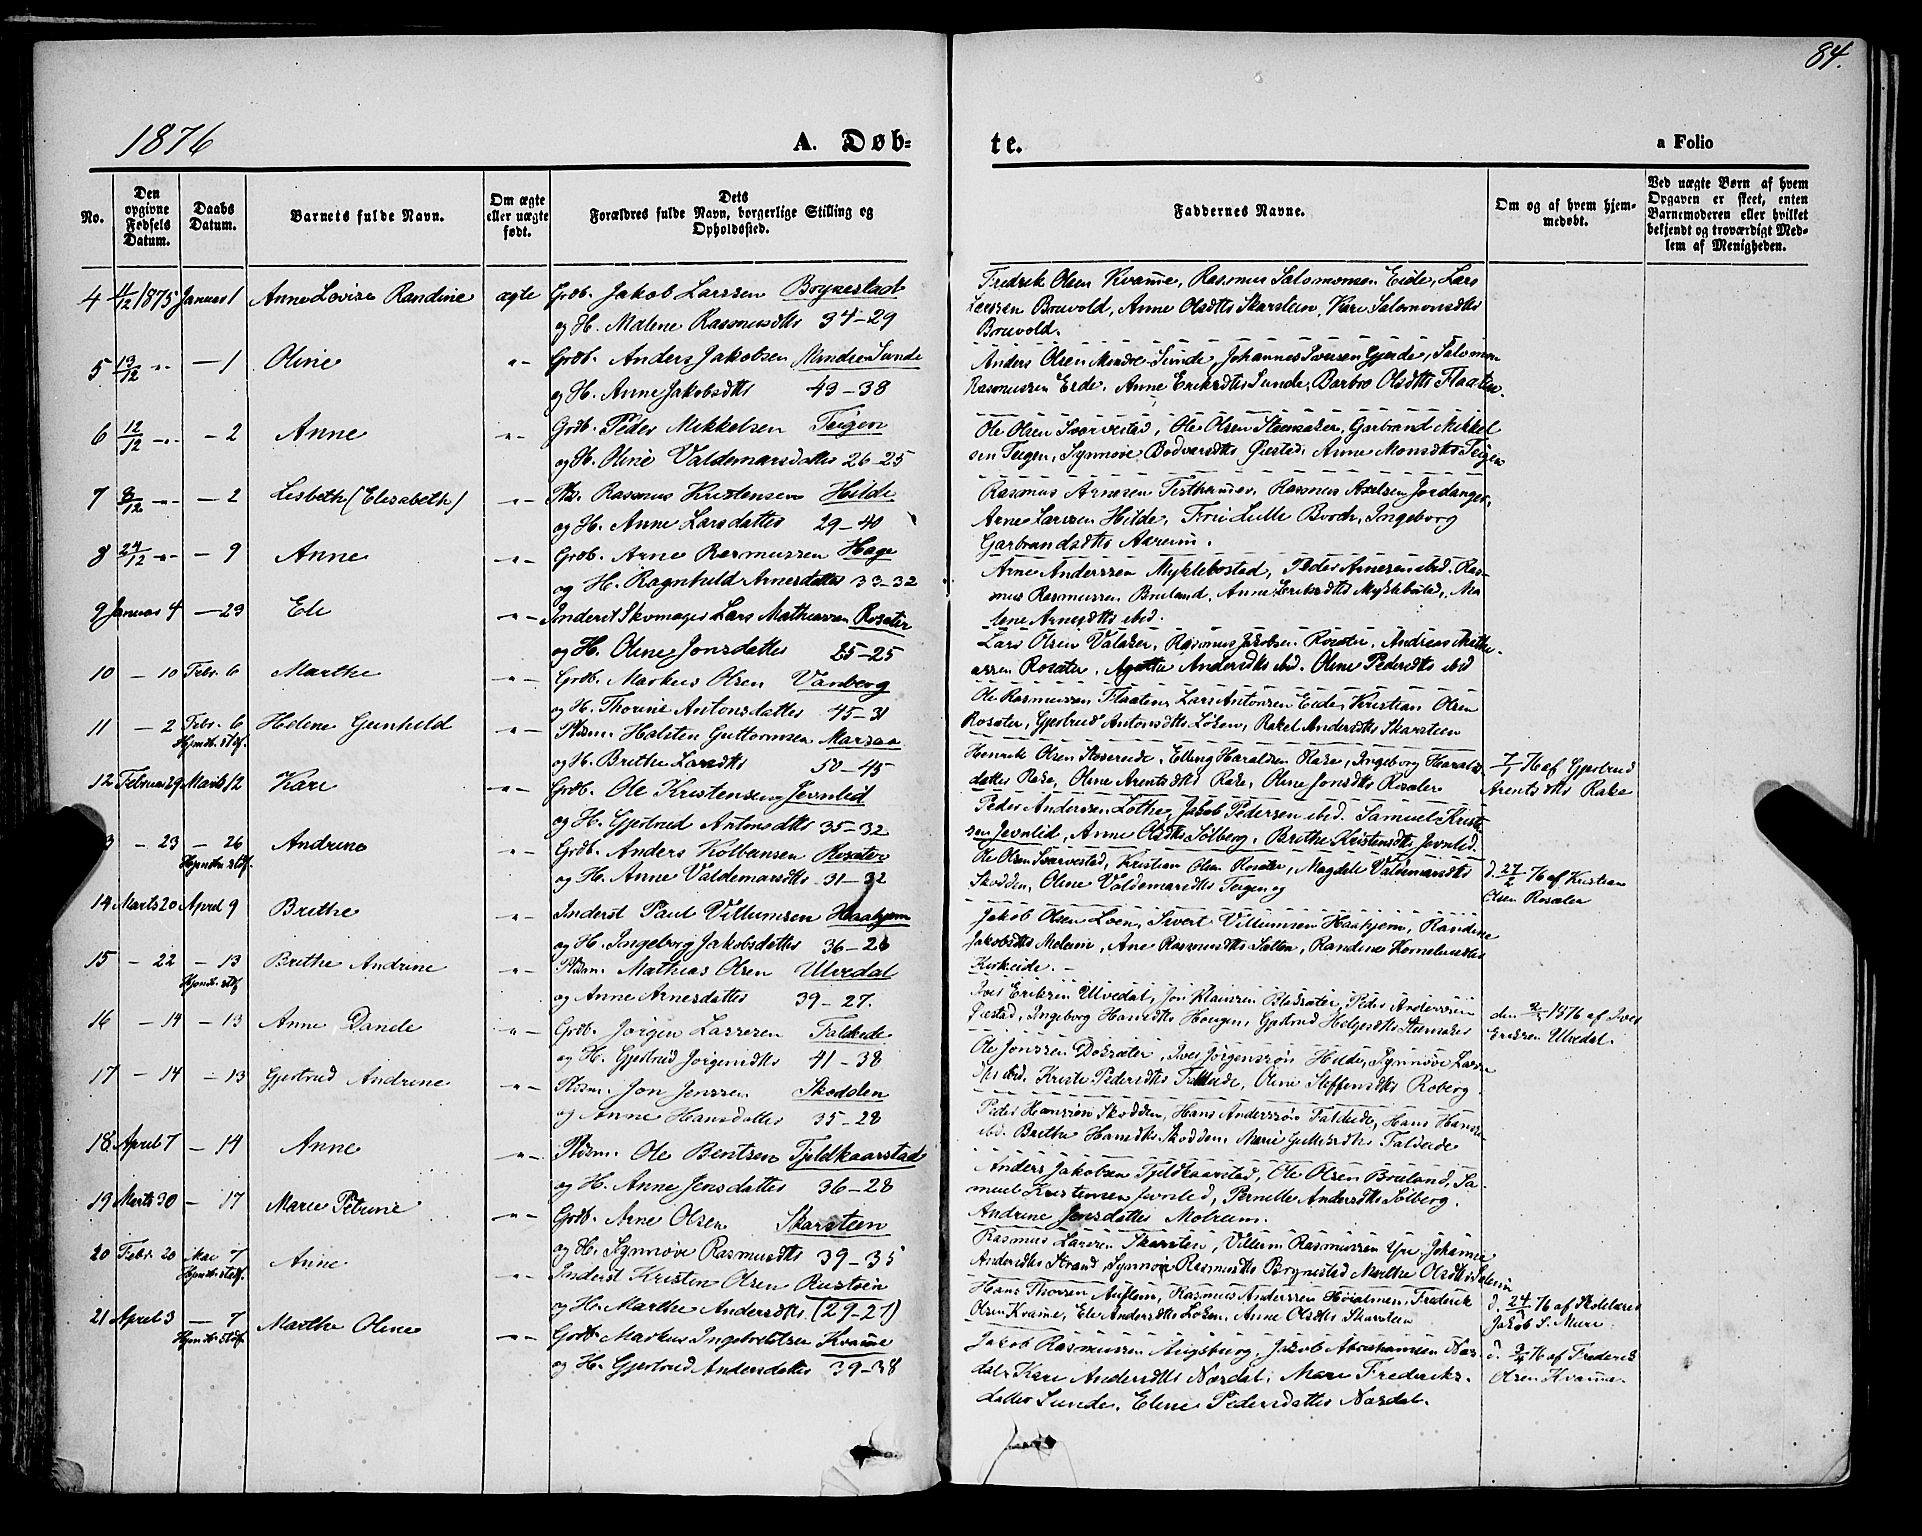 84.
1876
A. Døb-
te.
a Folio
No.
Den opgivne Fødsels Datum.
Daabs Datum.
Barnets fulde Navn.
Om ægte eller uægte født.
Dets Forældres fulde Navn, borgerlige Stilling og Opholdssted.
Faddernes Navne.
Om og af hvem hjemmedøbt.
Ved uægte Børn af hvem Opgaven er skeet, enten Barnemoderen eller hvilket bekjendt og troværdigt Medlem af Menigheden.
4 11/12 1875 Januar 1 Anne Lovise Randine ægte Grdb. Jakob Larssen Brynestad
og H. Malene Rasmusdtr 34-29
Fredrik Olsen Kvamme, Rasmus Salomonsen Eide, Lars
Larssen Bruvold, Anne Olsdtr Skarstein, Kari Salomonsdtr
Bruvold.
5 13/12 -"- - 1 Oline -"- Grdb. Anders Jakobsen Mindre Sunde
og H. Anne Jakobsdtr 43-38
Anders Olsen Mindre-Sunde, Johannes Iversen Gjerde, Salomon
Rasmussen Eide, Anne Eriksdtr Sunde, Barbro Olsdtr Flaaten.
6 12/12 -"- - 2 Anne -"- Grdb. Peder Mikkelsen Teigen
og H. Oline Valdemarsdatter 26-25
Ole Olsen Svarvestad, Ole Olsen Steensaker, Garbrand Mikkel
sen Teigen, Synnøve Bødvarsdtr Øiestad, Anne Monsdtr Teigen
7 8/12 -"- - 2 Lisbeth (Elisabeth) -"- Pls. Rasmus Kristensen Hilde
og H. Anne Larsdatter 29-40
Rasmus Arnesen Tisthander, Rasmus Axelsen Jordanger,
Arne Larssen Hilde, Frøi Lulle Borch, Ingeborg
Garbrandsdtr Aareim.
8 24/12 -"- - 9 Anne -"- Grdb. Arne Rasmussen Hage
og H. Ragnhild Arnesdatter 33-32
Arne Anderssen Myklebostad, Peder Arnesen ibid. Ras-
mus Rasmussen Bruland, Anne Eriksdtr Myklebostad, Ma
lene Arnesdtr ibid.
9 Januar 4 - 23 Ele -"- Inderst Skomager Lars Mathiassen Rosæter
og H. Oline Jonsdatter 25-25
Lars Olsen Valaker, Rasmus Jakobsen Rosæter, Andreas Mathi
assen Rosæter, Agathe Andersdtr ibid, Oline Pedersdtr ibid
10 - 10 Febr. 6 Marthe -"- Grdb. Markus Olsen Vanberg
og H. Thorine Antonsdatter 45-31
Ole Rasmussen Flaaten, Lars Antonsen Eide, Kristian Olsen
Rosæter, Gjertrud Antonsdtr Løken, Rakel Andersdtr Skarsteen
11 - 2 Febr. 6 Hjemdb. stdf. Helene Gunhild -"- Pldsm. Halsten Guttormsen Marsaa
og H. Brithe Larsdtr 50-45
Henrik Olsen Roseide, Elling Haraldsen Rake, Ingeborg Harals
datter Rake, Oline Arentsdtr Rake, Oline Jonsdtr Rosæter
7/1 76 af Gjertrud
Arentsdtr Rake
12 Februar 29 Marts 12 Kari -"- Grdb. Ole Kristensen Jevnlid
og H. Gjertrud Antonsdtr 35-32
Peder Anderssen Lothe, Jakob Pedersen ibid. Samuel Kristen
sen Jevnlid, Anne Olsdtr Sølberg, Brithe Kristensdtr Jevnlid.
3 - 23 - 26 Hjemdb. stdf. Andrine -"- Grdb. Anders Kolbensen Rosæter
og H. Anne Valdemarsdtr 31-32
Ole Olsen Svarvestad, Kristian Olsen Rosæter, Magdele Valdemarsdtr
Skodden, Oline Valdemarsdtr Teigen og
d. 27/2 76 af Kristian
Olsen Rosæter
14 Marts 20 April 9 Brithe -"- Inderst Paul Villumsen Haahjem
og H. Ingeborg Jakobsdatter 36-26
Jakob Olsen Loen, Sivert Villumsen Haahjem, Randine
Jakobsdtr Melem, Ane Rasmusdtr Sætren, Randine Korneliusdtr
Kirkeide.
15 - 22 - 13 Hjemdb. stdf Brithe Andrine -"- Pldsm. Mathias Olsen Ulvedal
og Anne Arnesdatter 39-27.
Iver Eriksen Ulvedal, Jon Klaussen Bladsæter, Peder Anderssen
Øiestad, Ingeborg Hansdtr Hougen, Gjertrud Helgesdtr Steensaker
1876 af Iver
Eriksen Ulvedal.
16 - 14 - 13 Anne Dande -"- Grdb. Jørgen Larssen Faleide
og H. Gjertrud Jørgensdtr 41-38
Ole Jonssen Dokseter, Iver Jørgenssøn Hilde, Synnøve Lars
dtr ibid. Kristi Pedersdtr Faleide, Oline Steffensdtr Roberg
17 - 14 - 13 Gjertrud Andrine -"- Pldsm. Jon Jenssen Skodden
og Anne Hansdatter 35-28
Peder Hanssøn Skodden, Hans Anderssøn Faleide, Hans Hansen
ibd. Brithe Hansdtr Skodden, Marie Gulliksdtr Faleide
18 April 7 - 14 Anne -"- Pldsm. Ole Bentsen Tjeldkaarstad
og H. Anne Jensdatter 36-28
Anders Jakobsen Tjeldkaarstad, Ole Olsen Bruland, Sa
muel Kristensen Jevnlid, Pernille Andersdtr Sølberg,
Andrine Jensdatter Molreim.
19 Marts 30 - 17 Marie Petrine -"- Grdb. Arne Olsen Skarsteen
og H. Synnøve Rasmusdtr 39-35
Rasmus Larssen Skarsten, Villum Rasmussen Yri, Johanne
Andersdtr Strand, Synnøve Rasmusdtr Brynestad, Marthe Olsdtr
20 Febr. 20 Mai 7 Hjemdb. stdf. Anne -"- Inderst Kristen Olsen Rustøen
og H. Marthe Andersdtr (29-27)
Hans Thorsen Auflem, Rasmus Anderssen Hvialmen, Frederik
Olsen Kvamme, Ele Andersdtr Løken, Anne Olsdtr Skarsteen
d. 24/2 76 af Skolelærer
Jakob S. Muri
21 April 3 - 7 Hjemdb. stdf. Marthe Oline -"- Grdb. Markus Ingebretsen Kvamme
og H. Gjertrud Andersdatter 39-38
Jakob Rasmussen Augsburg, Jakob Abrahamsen Nor
dal, Kari Andersdtr Nordal, Mari Frederiks-
datter Sunde, Eline Pedersdatter Nordal.
d. 3/4 76 af Frederik
Olsen Kvamme